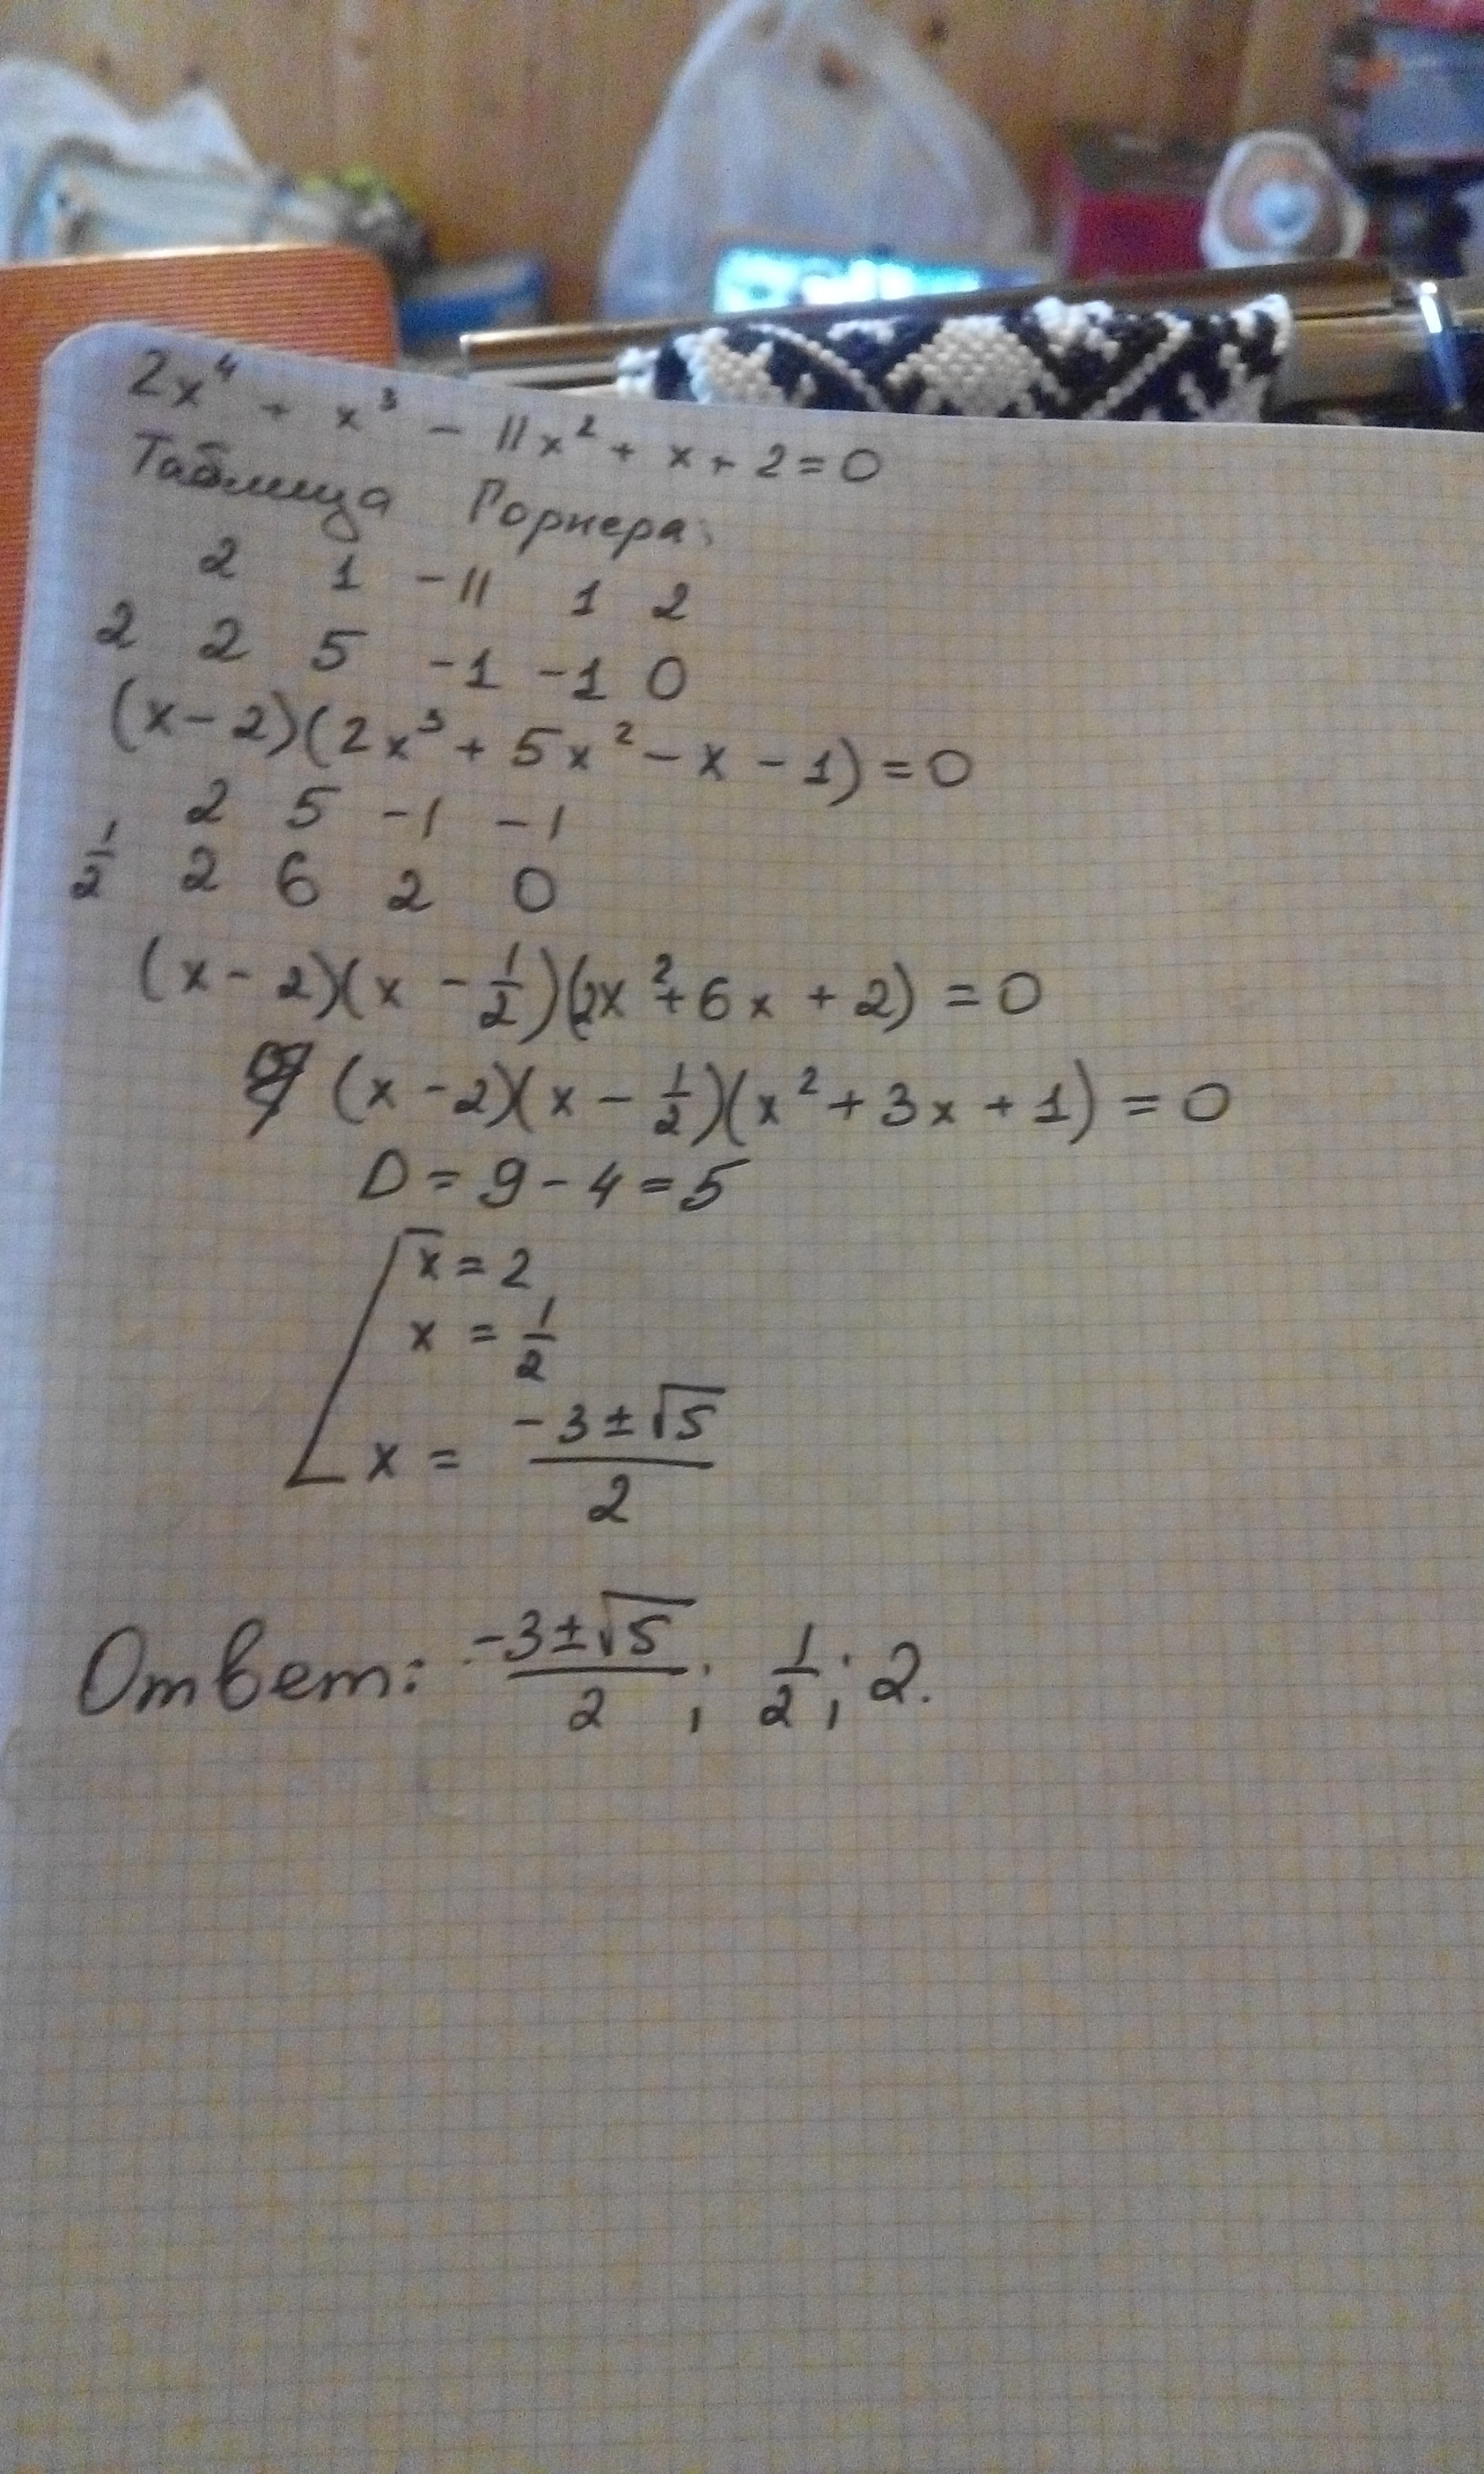 2x⁴ + x³ - 11x² + x + 2 = 0
Таблица Горнера:
2 1 -11 1 2
2 2 5 -1 -1 0
(x-2)(2x³ + 5x² - x - 1) = 0
2 5 -1 -1
1/2 2 6 2 0
(x-2)(x - 1/2)(2x² + 6x + 2) = 0
(x-2)(x - 1/2)(x² + 3x + 1) = 0
D = 9 - 4 = 5
x = 2
x = 1/2
x = (-3±√5)/2
Ответ: (-3±√5)/2; 1/2; 2.